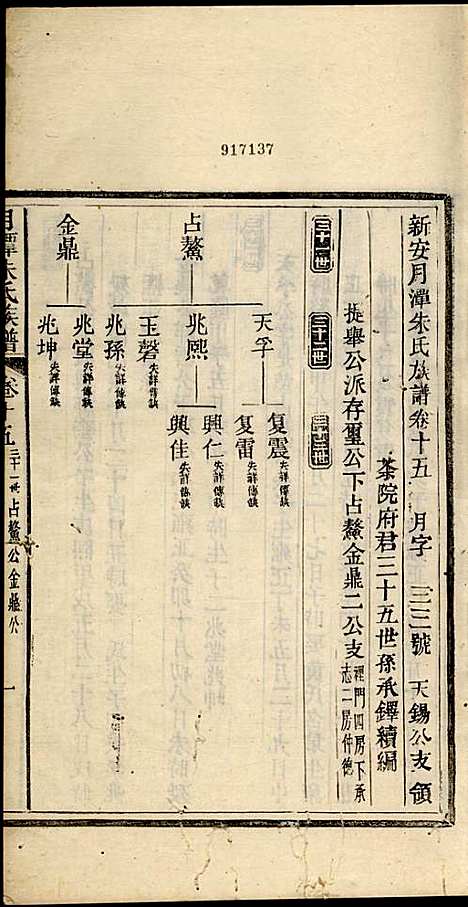 917137
新安月潭朱氏族譜卷十五 月字 三三號 天錫公支領
茶院府君三十五世孫承鐸續編
提舉公派存璽公下占鰲金鼎二公支 裡門四房下承
志二房仲德
三十一世
三十二世
三十三世
占鰲
天孚
复震 失詳傳缺
复雷 失詳傳缺
兆熙
興仁 失詳傳缺
興佳 失詳傳缺
玉磬 失詳傳缺
兆孫 失詳傳缺
金鼎
兆堂 失詳傳缺
兆坤 失詳傳缺
月潭朱氏族譜 卷十五 三十一世占鰲公金鼎公 一